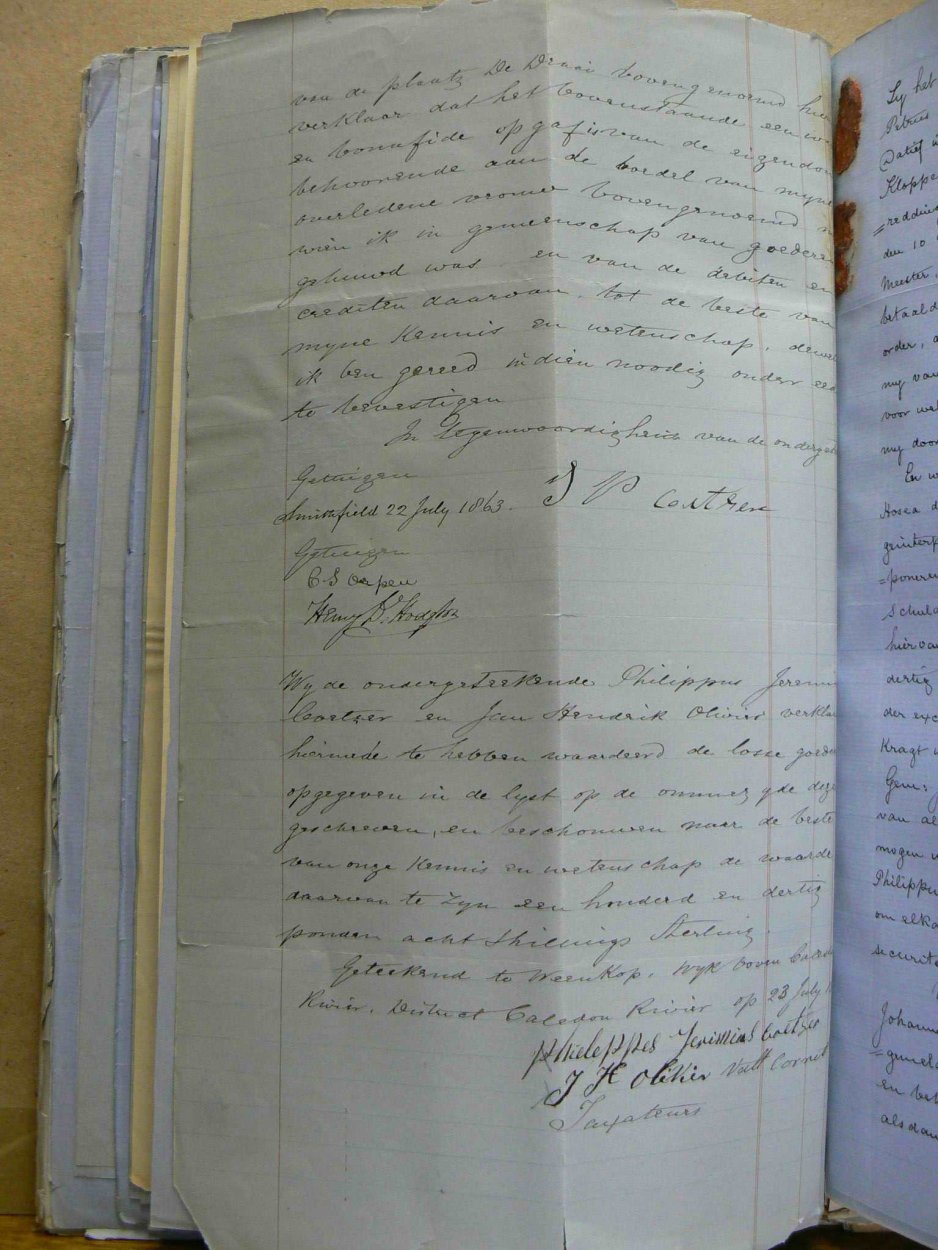 van de plaatz De Draai bovengenoemd hier
verklaar dat het bovenstaande een wa
en bonafide opgaf is van de eigendom
behoorende aan de boedel van myne
overledene vrouw bovengenoemd m
wien ik in gemeenschap van goederen
gehuwd was en van de debiten en
crediten daarvan, tot de beste van
myne Kennis en wetenschap, dewel
ik ben gereed indien noodig onder eed
te bevestigen
In Tegenwoordigheid van de onderget
Getuigen
Smithfield 22 July 1863.
J P Coetzee
Getuigen
C S Orpen
Henry B. Hodgson
Wy de ondergeteekende Philippus Jeremi
Coetzer en Jan Hendrik Olivier verklar
hiermede te hebben waardeerd de losse goede
opgegeven in de lyst op de ommezyde deze
geschreven, en beschouwen naar de beste
van onze Kennis en wetenschap de waarde
daarvan te zyn een honderd en dertig
ponden acht Shillings Sterling.
Geteekend te Weenkop, Wyk boven Caledo
Rivier, District Caledon Rivier op 23 July 1
Jeremias Coetzee
J H Olivier Veldt Cornet
Taxateurs
By het
Petrus
Datief i
Kloppe
=reddin
den 10
Meester
betaald
order, a
my van
voor we
my door
En w
Hosea d
geinterp
=poneren
Schuld
hiervan
dertig
der exc
Kragt
Gen:
van al
mogen
Philippu
om elka
securite
Johann
en bet
alsdan